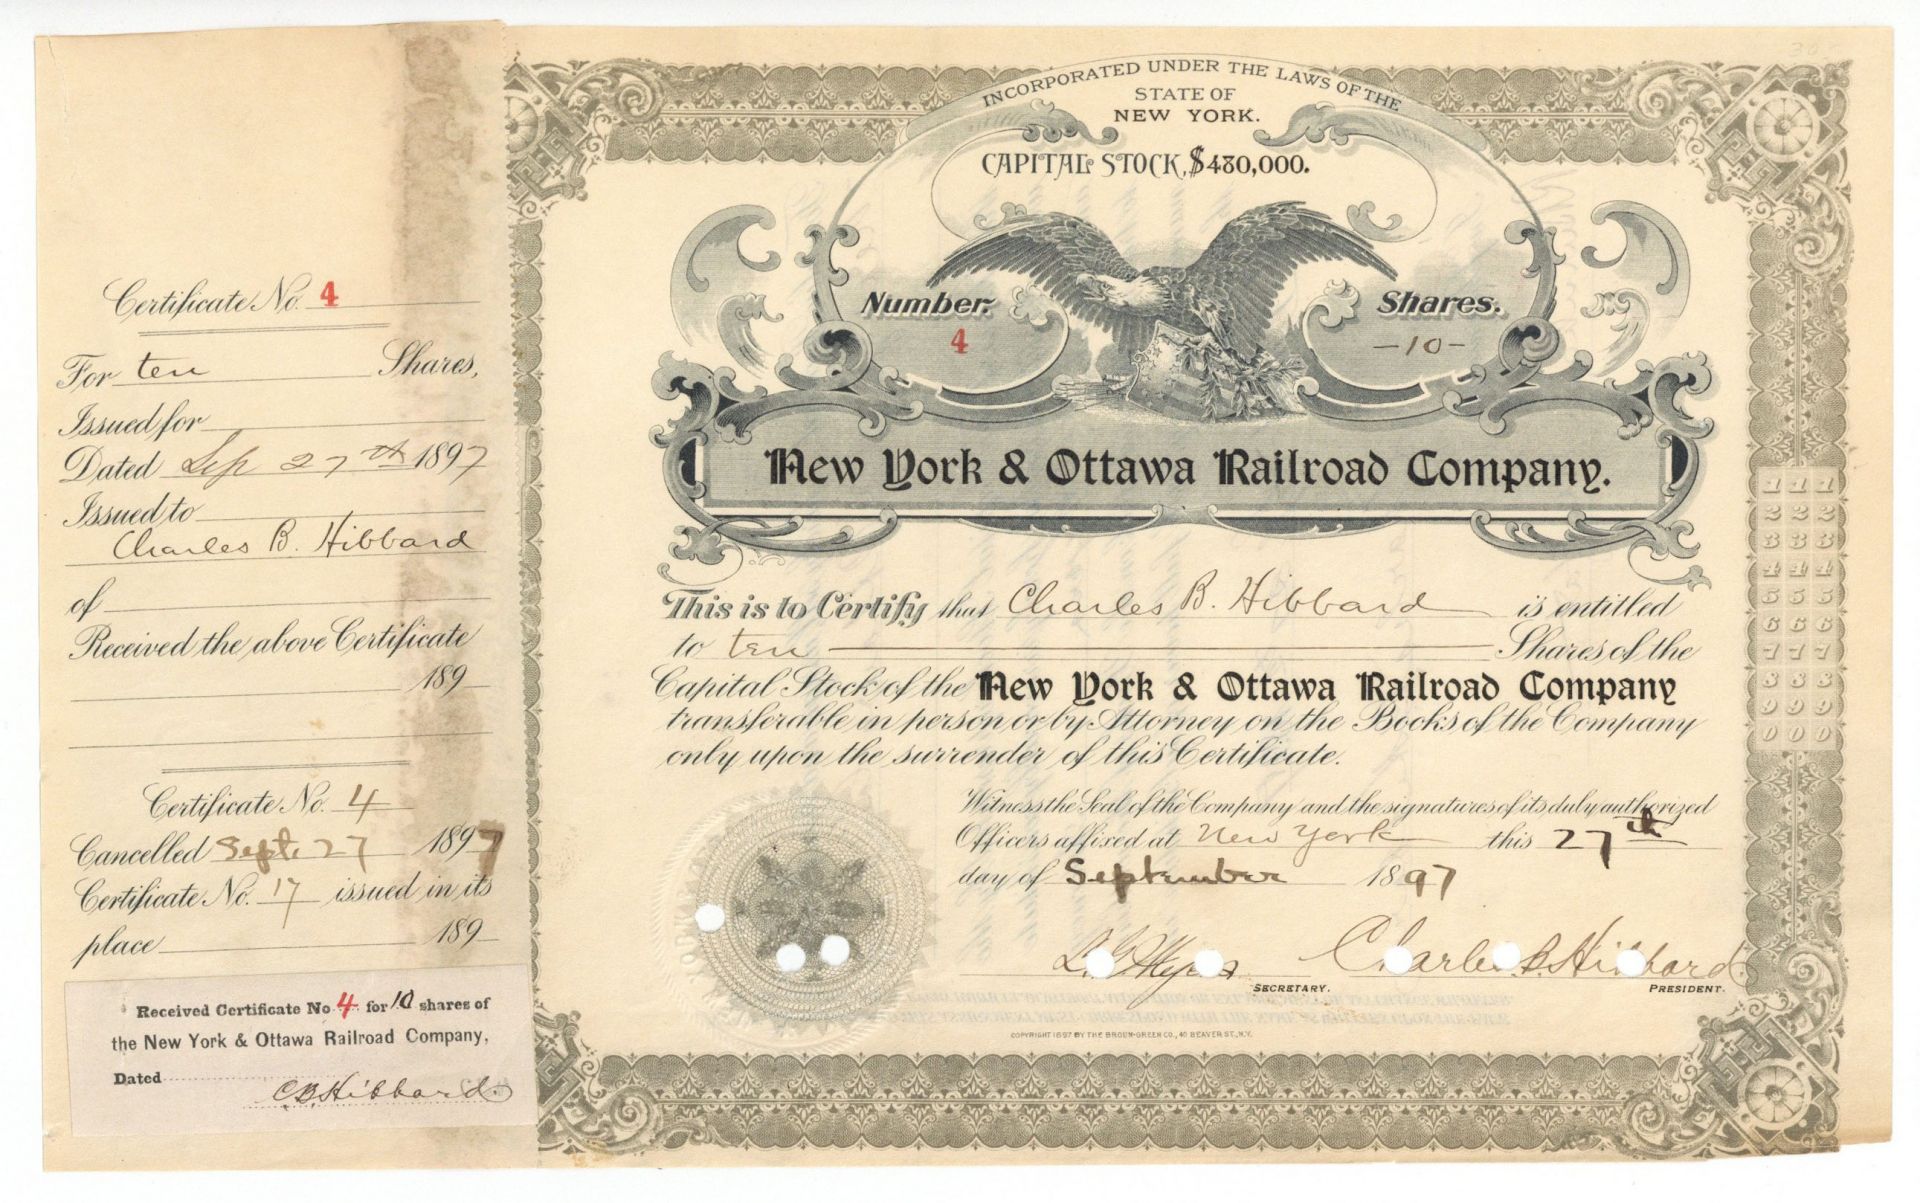 Certificate No. 4
For ten Shares,
Issued for
Dated Sep 27th 1897
Issued to
Charles B. Hibbard
of
Received the above Certificate
189
Certificate No. 4
Cancelled Sept. 27 1897
Certificate No. 17 issued in its
place 189
Received Certificate No 4 for 10 shares of
the New York & Ottawa Railroad Company,
Dated
C B Hibbard
INCORPORATED UNDER THE LAWS OF THE
STATE OF
NEW YORK.
CAPITAL STOCK, $480,000.
Number. Shares.
4 -10-
New York & Ottawa Railroad Company.
This is to Certify that Charles B. Hibbard is entitled
to ten Shares of the
Capital Stock of the New York & Ottawa Railroad Company
transferable in person or by Attorney on the Books of the Company
only upon the surrender of this Certificate.
Witness the Seal of the Company and the signatures of its duly authorized
Officers affixed at New York this 27th
day of September 1897
Charles B. Hibbard
SECRETARY. PRESIDENT.
COPYRIGHT 1897 BY THE BROUN-GREEN CO., 40 BEAVER ST., N.Y.
1 1 1
2 2 2
3 3 3
4 4 4
5 5 5
6 6 6
7 7 7
8 8 8
9 9 9
0 0 0